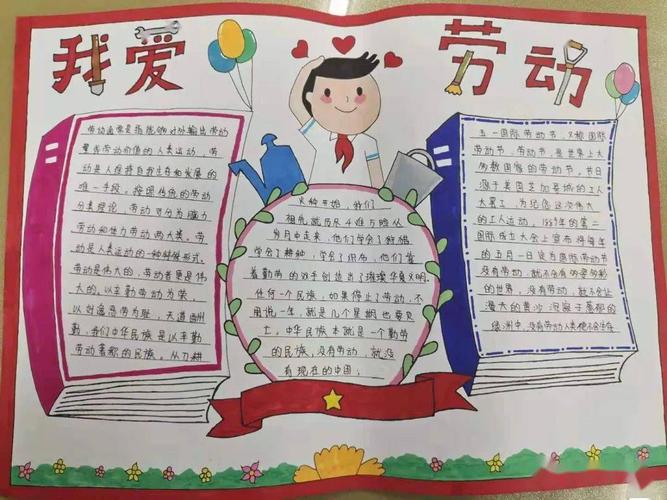 我爱劳动
劳动通常是指能够对外输出劳动
量或劳动价值的人类运动，劳
动是人维持自我生存和发展的
唯一手段。按照传统的劳动
分类理论，劳动可分为脑力
劳动和体力劳动两大类。劳
动是人类运动的一种特殊形式。
劳动是伟大的，劳动者更是伟
大的。以辛勤劳动为荣，
以好逸恶劳为耻，天道酬
勤，我们中华民族是以辛勤
劳动著称的民族。从刀耕
火种开始，我们
祖先就历尽艰难与险
岁月中走来，他们学会了狩猎
学会了耕种，学会了织布，他们靠
着勤劳的双手创造出了璀璨华夏文明。
任何一个民族，如果停止了劳动，不
用说一年，就是几个星期也要灭
亡。中华民族本就是一个勤劳
的民族，没有劳动，就没
有现在的中国；
五一国际劳动节，又称国际
劳动节、劳动节，是世界上大
多数国家的劳动节。节日
源于美国芝加哥城的工人
大罢工，为纪念这次伟大
的工人运动，1889年的第二
国际成立大会上宣布将每年
的五月一日设为国际劳动节
没有劳动，就不会有多姿多彩
的世界，没有劳动，就不会让
漫大的黄沙
绿洲中，没有劳动人类便不会